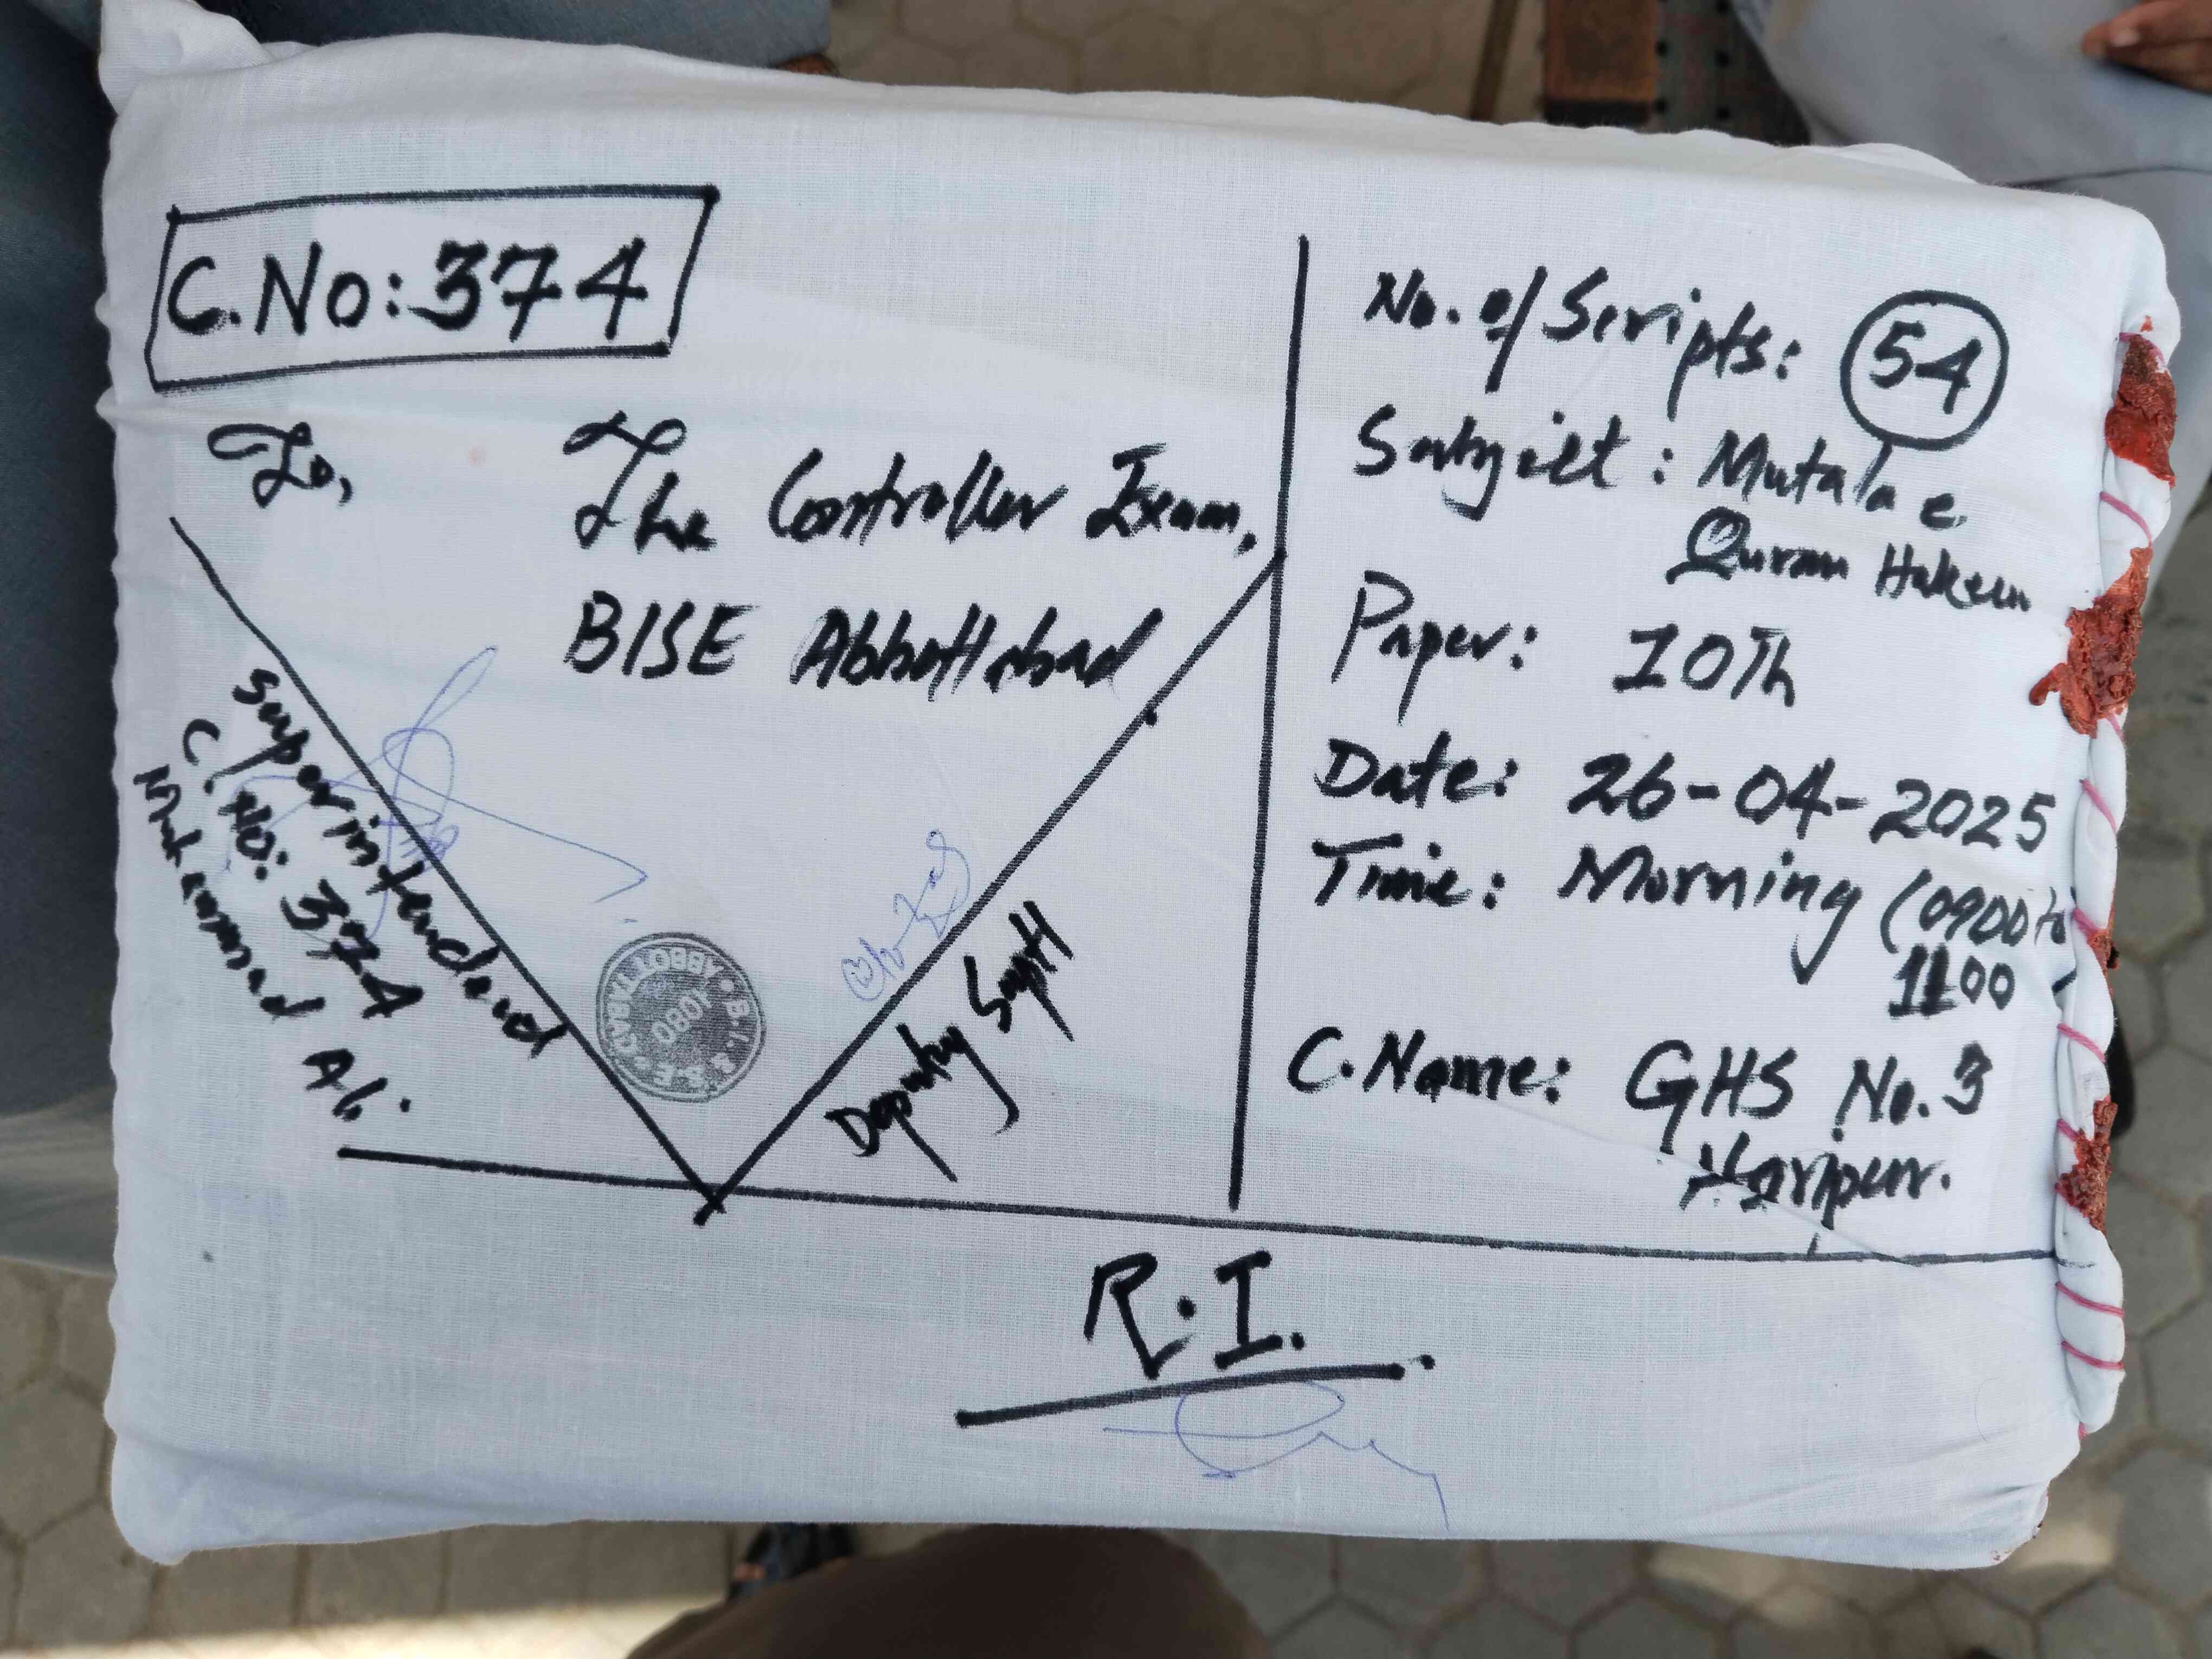 C.No: 374
To,
The Controller Exam,
BISE Abbottabad
Superintendent
C. No: 374
Muhammad Ali.
B.I.S.E. ABBOTTABAD
1080
Deputy Suptt
No. of Scripts: 54
Subject: Mutala e
Quran Hakeem
Paper: 10Th
Date: 26-04-2025
Time: Morning (0900 to
1100
C.Name: GHS No.3
Haripur.
R.I.